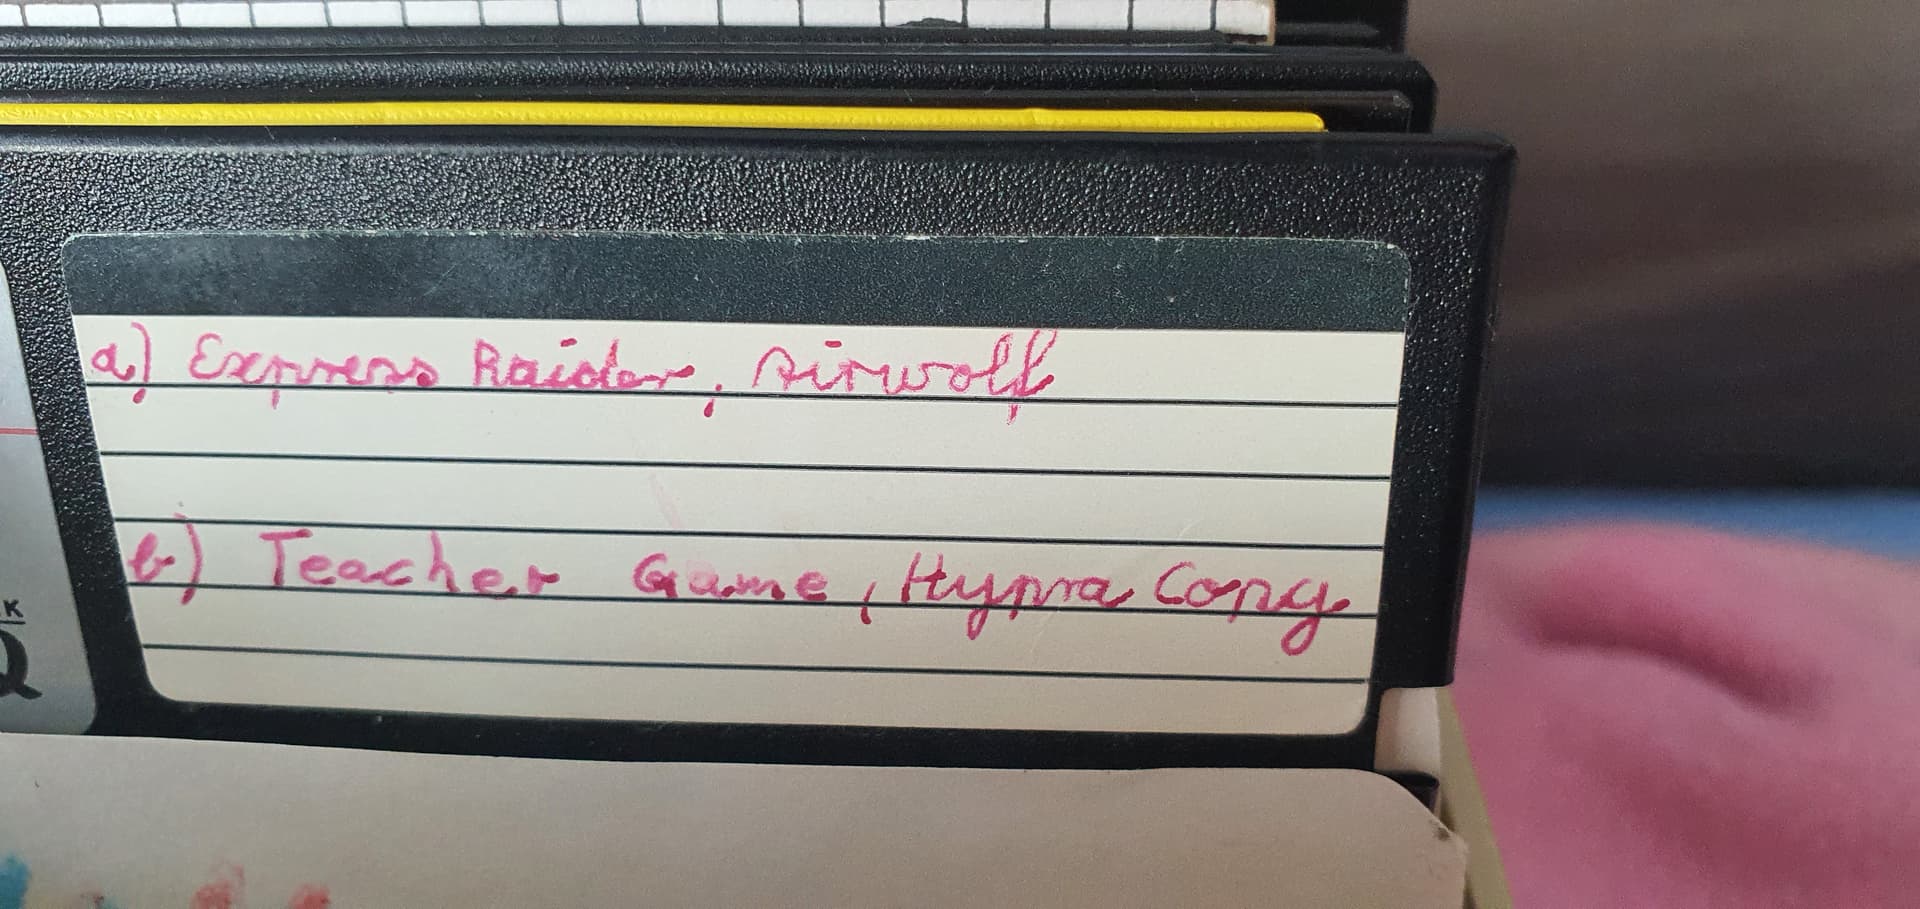 a) Express Raider, Airwolf
b) Teacher Game, Hypra Copy
K
Q